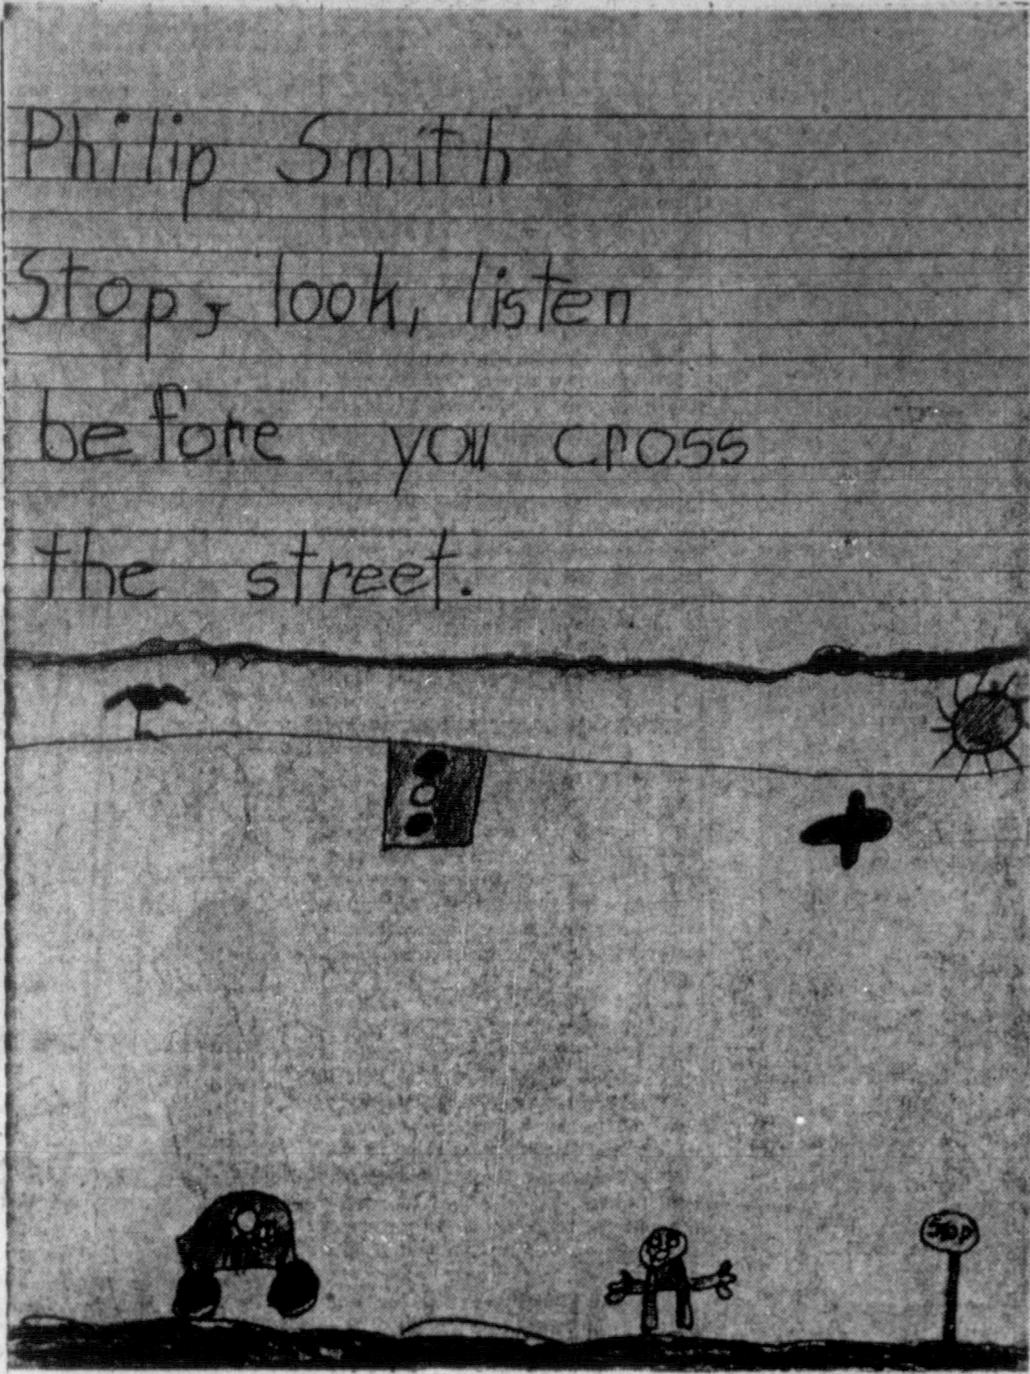 Philip Smith
Stop, look, listen
before you cross
the street.
Stop